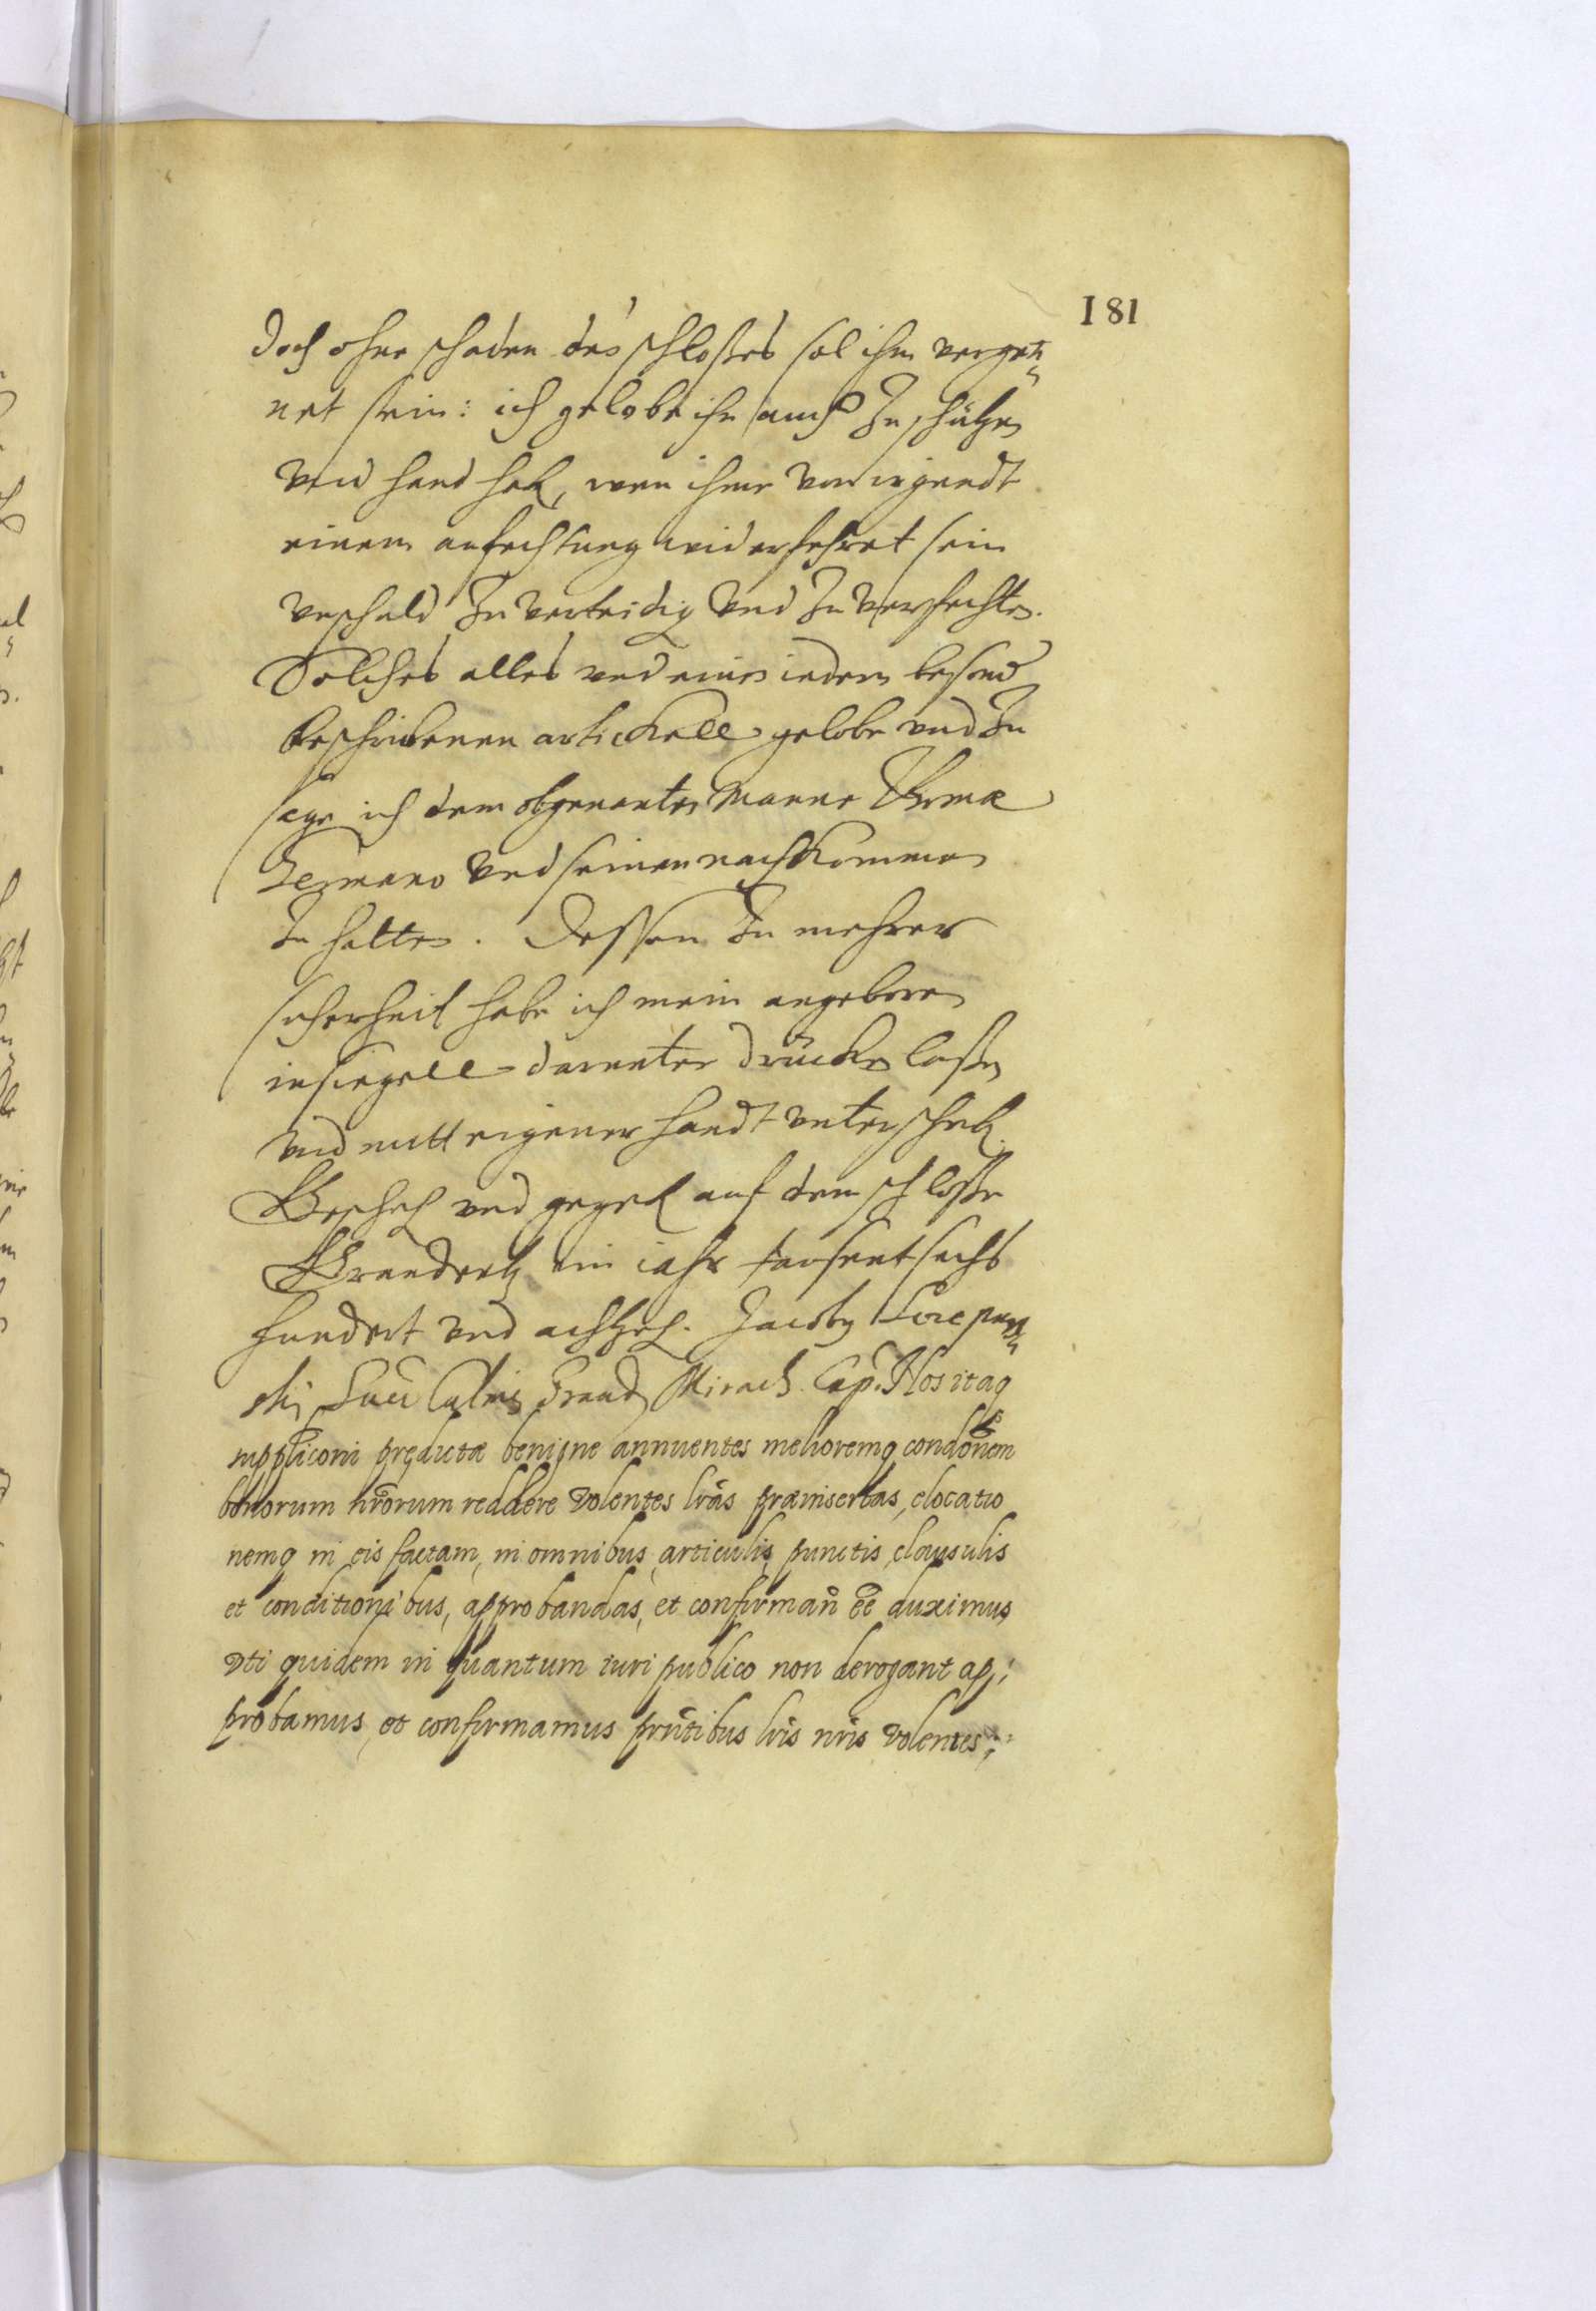 181
doch ohne schaden des schloßes sol ihm vergön„
net sein: ich gelobe ihn auch zu schützen
vnd hand hab, wen ihme von irgendt
einem anfechtung widerfehret sein
vnschuld zu verteidig vnd zu verfechten.
Solches alles vnd eines iedern besond
beschribenen artickell gelobe vnd zu
sage ich dem obgenanten Manne
Germano vnd seinen nachkommen
zu halten. Dessen zu mehrer
sicherheit habe ich mein angeboren
insiegell darunter drücken laßen
vnd mitt eigener handt vnterschrb.
Gescheh vnd gegeb auf dem schloße
Graudentz im iahr tausent sechs
hundert vnd achtzeh. Jacoby Szczepan„
ski Succ Culmens Graud Mirach. Cap. Nos itaq
suppliconi prędictæ benigne annuentes melioremq condonem
bonorum nrorum reddere volentes lras præinsertas, elocatio
nemq in eis factam, in omnibus, articulis, punctis, clausulis
et conditionibus, approbandas, et confirman ee duximus
vti quidem in quantum iuri publico non derogant ap:
probamus, et confirmamus prntibus lris nris volentes;